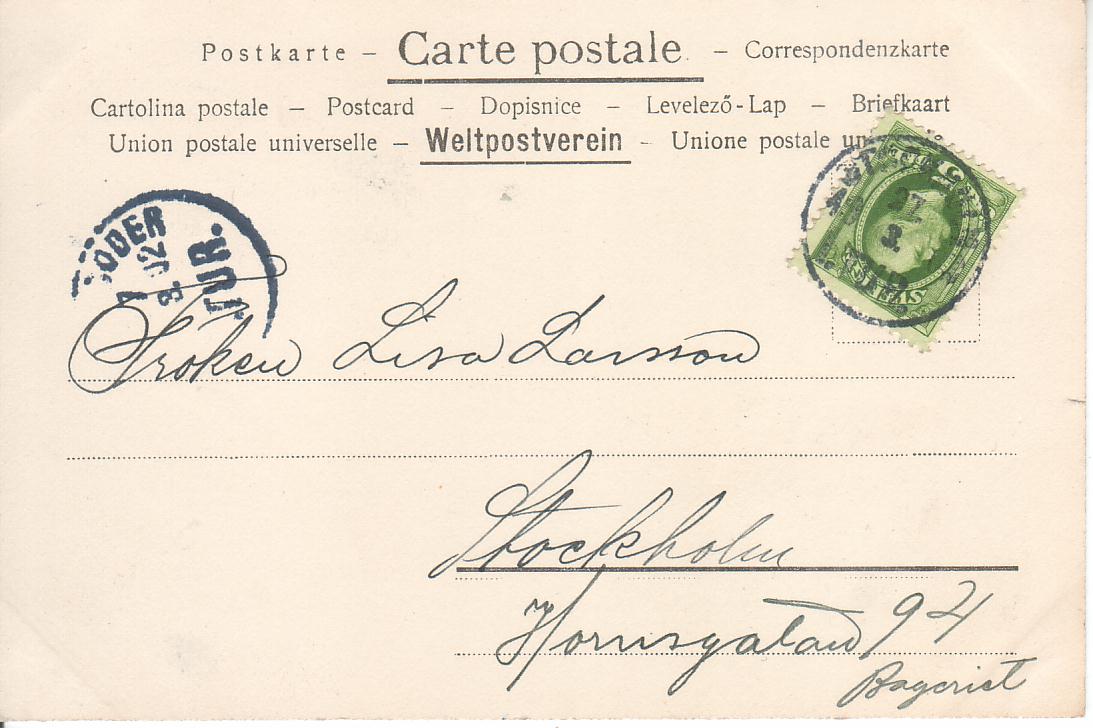 Postkarte – Carte postale. – Correspondenzkarte
Cartolina postale – Postcard – Dopisnice – Levelező-Lap – Briefkaart
Union postale universelle – Weltpostverein – Unione postale un
SÖDER
TUR.
27
3
SVERIGE
Fröken Lisa Larsson
Stockholm
Hornsgatan 94
Bageriet